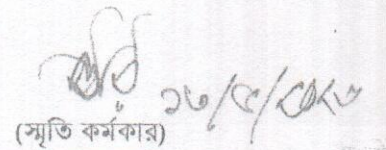 ১৩/৫/২০২৩
(স্মৃতি কর্মকার)